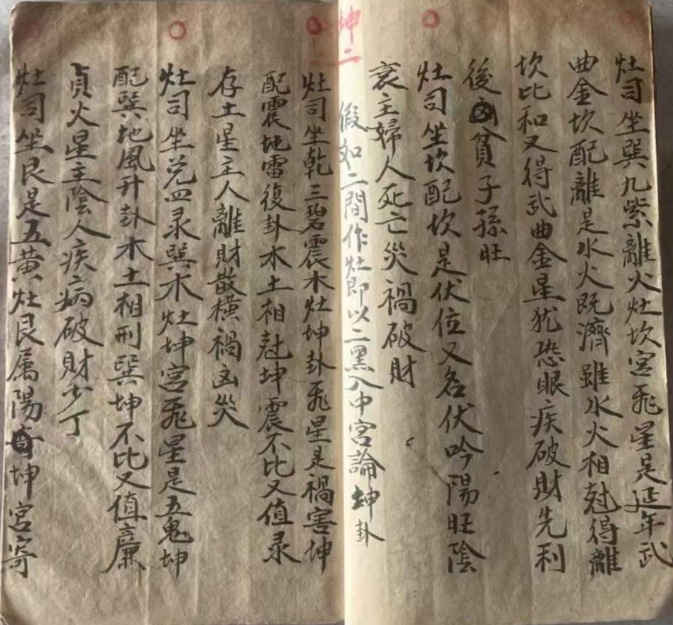 灶司坐巽九紫離火灶坎宮飛星是延年武
曲金坎配離是水火既濟雖水火相尅得離
坎比和又得武曲金星犹恐眼疾破財先利
後貧子孫旺
灶司坐坎配坎是伏位又名伏吟陽旺陰
衰主婦人死亡災禍破財
坤二
假如二間作灶即以二黑入中宮論坤卦
灶司坐乾三碧震木灶坤卦飛星是禍害坤
配震地雷復卦木土相尅坤震不比又值录
存土星主人離財散橫禍凶災
灶司坐兌四录巽木灶坤宮飛星是五鬼坤
配巽地風升卦木土相刑巽坤不比又值廉
貞火星主陰人疾病破財少丁
灶司坐艮是五黄灶艮属陽坤宮寄